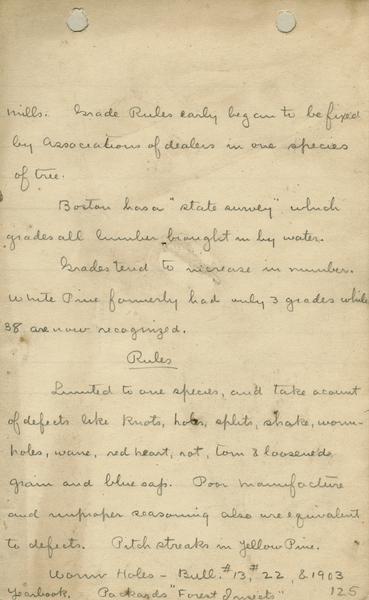 mills. Grade Rules early began to be fixed
by Associations of dealers in one species
of tree.
Boston has a "state survey" which
grades all lumber brought in by water.
Grades tend to increase in number.
White Pine formerly had only 3 grades while
38 are now recognized.
Rules
Limited to one species, and take acount
of defects like knots, holes, splits, shake, worm-
holes, wane, red heart, rot, torn & loosened
grain and blue sap. Poor manufacture
and improper seasoning also are equivalent
to defects. Pitch streaks in Yellow Pine.
Worm Holes - Bull. #13, #22, & 1903
Yearbook. Packards "Forest Insects" 125